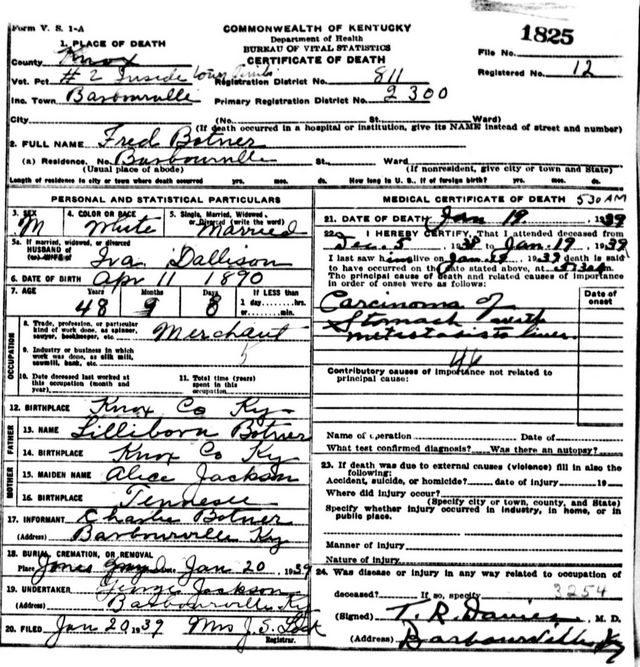 Form V. S. 1-A
COMMONWEALTH OF KENTUCKY
Department of Health
BUREAU OF VITAL STATISTICS
CERTIFICATE OF DEATH
1825
File No.
Registered No. 12
1. PLACE OF DEATH
County Knox
Vot. Pct #2 Inside town limits
Registration District No. 811
Inc. Town Barbourville
Primary Registration District No. 2300
City (No. St. Ward)
(If death occurred in a hospital or institution, give its NAME instead of street and number)
2. FULL NAME Fred Botner
(a) Residence. No. Barbourville St., Ward.
(Usual place of abode) (If nonresident, give city or town and State)
Length of residence in city or town where death occurred yrs. mos. ds. How long in U. S., if of foreign birth? yrs. mos. ds.
PERSONAL AND STATISTICAL PARTICULARS
3. SEX M
4. COLOR OR RACE White
5. Single, Married, Widowed, or Divorced (write the word) Married
5a. If married, widowed, or divorced
HUSBAND of
(or) WIFE of Iva Dallison
6. DATE OF BIRTH Apr 11 1890
7. AGE Years Months Days If LESS than
48 9 8 1 day, hrs.
or min.
OCCUPATION
8. Trade, profession, or particular
kind of work done, as spinner,
sawyer, bookkeeper, etc. Merchant
9. Industry or business in which
work was done, as silk mill,
sawmill, bank, etc.
10. Date deceased last worked at
this occupation (month and
year)
11. Total time (years)
spent in this
occupation
12. BIRTHPLACE Knox Co Ky
FATHER
13. NAME Lilliborn Botner
14. BIRTHPLACE Knox Co Ky
MOTHER
15. MAIDEN NAME Alice Jackson
16. BIRTHPLACE Tennessee
17. INFORMANT Charlie Botner
(Address) Barbourville Ky
18. BURIAL, CREMATION, OR REMOVAL
Place Jones Date Jan 20 1939
19. UNDERTAKER George Jackson
(Address) Barbourville Ky
20. FILED Jan 20 1939 Mrs J. S. Lock
Registrar.
MEDICAL CERTIFICATE OF DEATH 5 30 AM
21. DATE OF DEATH Jan 19 1939
22. I HEREBY CERTIFY, That I attended deceased from
Dec. 5 1938 to Jan. 19, 1939
I last saw him alive on Jan 19 1939 death is said
to have occurred on the date stated above, at 5:30 am
The principal cause of death and related causes of importance
in order of onset were as follows:
Date of
onset
Carcinoma of
Stomach with
metastasis to liver
46
Contributory causes of importance not related to
principal cause:
Name of operation Date of
What test confirmed diagnosis? Was there an autopsy?
23. If death was due to external causes (violence) fill in also the
following:
Accident, suicide, or homicide? date of injury 19
Where did injury occur?
(Specify city or town, county, and State)
Specify whether injury occurred in industry, in home, or in
public place.
Manner of injury
Nature of injury
24. Was disease or injury in any way related to occupation of
deceased? If so, specify 3254
(Signed) T. R. Davies, M. D.
(Address) Barbourville Ky